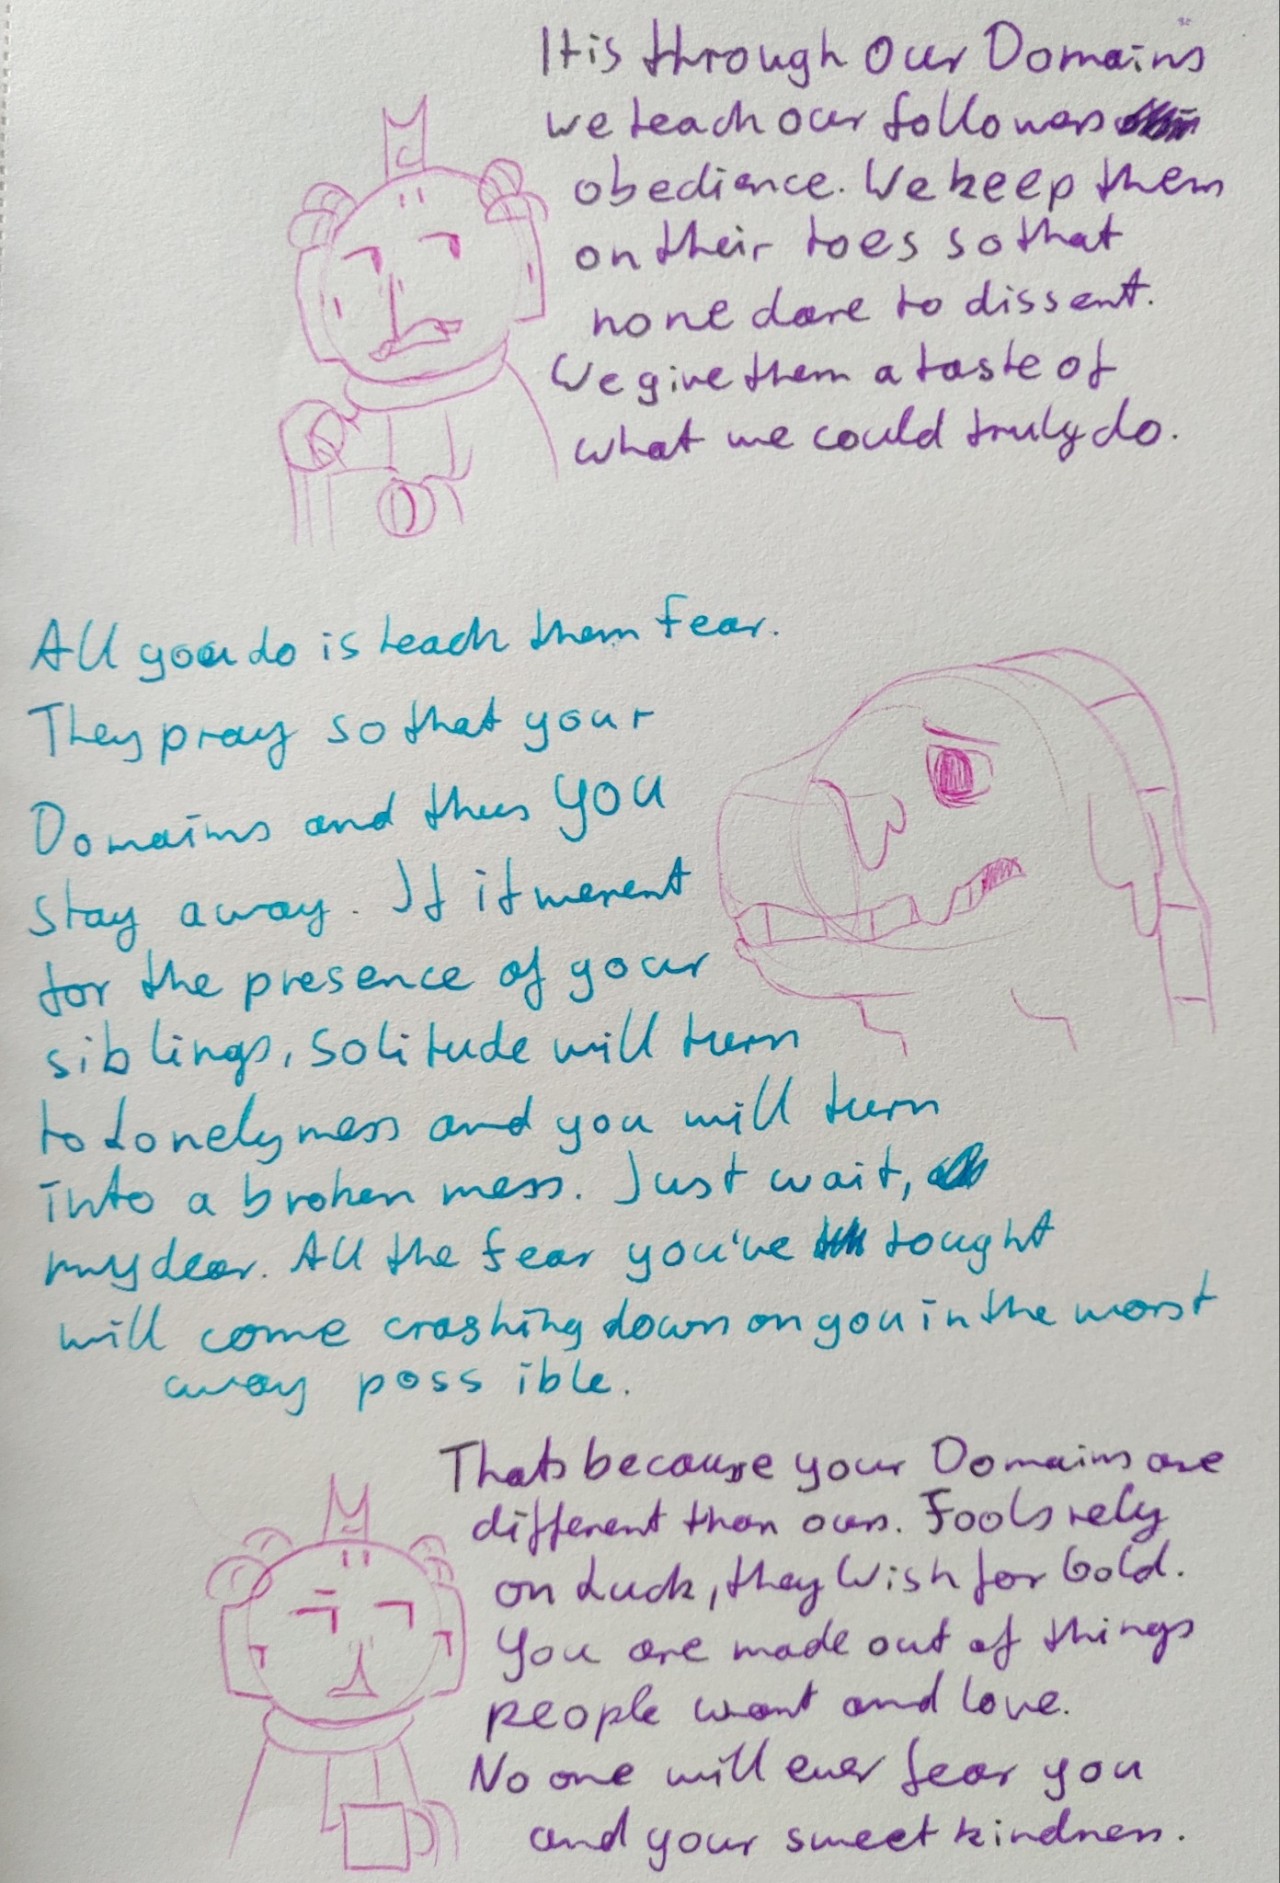 It is through Our Domains
we teach our followers
obedience. We keep them
on their toes so that
none dare to dissent.
We give them a taste of
what we could truly do.
All you do is teach them fear.
They pray so that your
Domains and thus YOU
stay away. If it werent
for the presence of your
siblings, Solitude will turn
to Lonelyness and you will turn
into a broken mess. Just wait,
my dear. All the fear you've tought
will come crashing down on you in the worst
away possible.
Thats because your Domains are
different than ours. Fools rely
on Luck, they Wish for Gold.
You are made out of things
people want and love.
No one will ever fear you
and your sweet kindness.